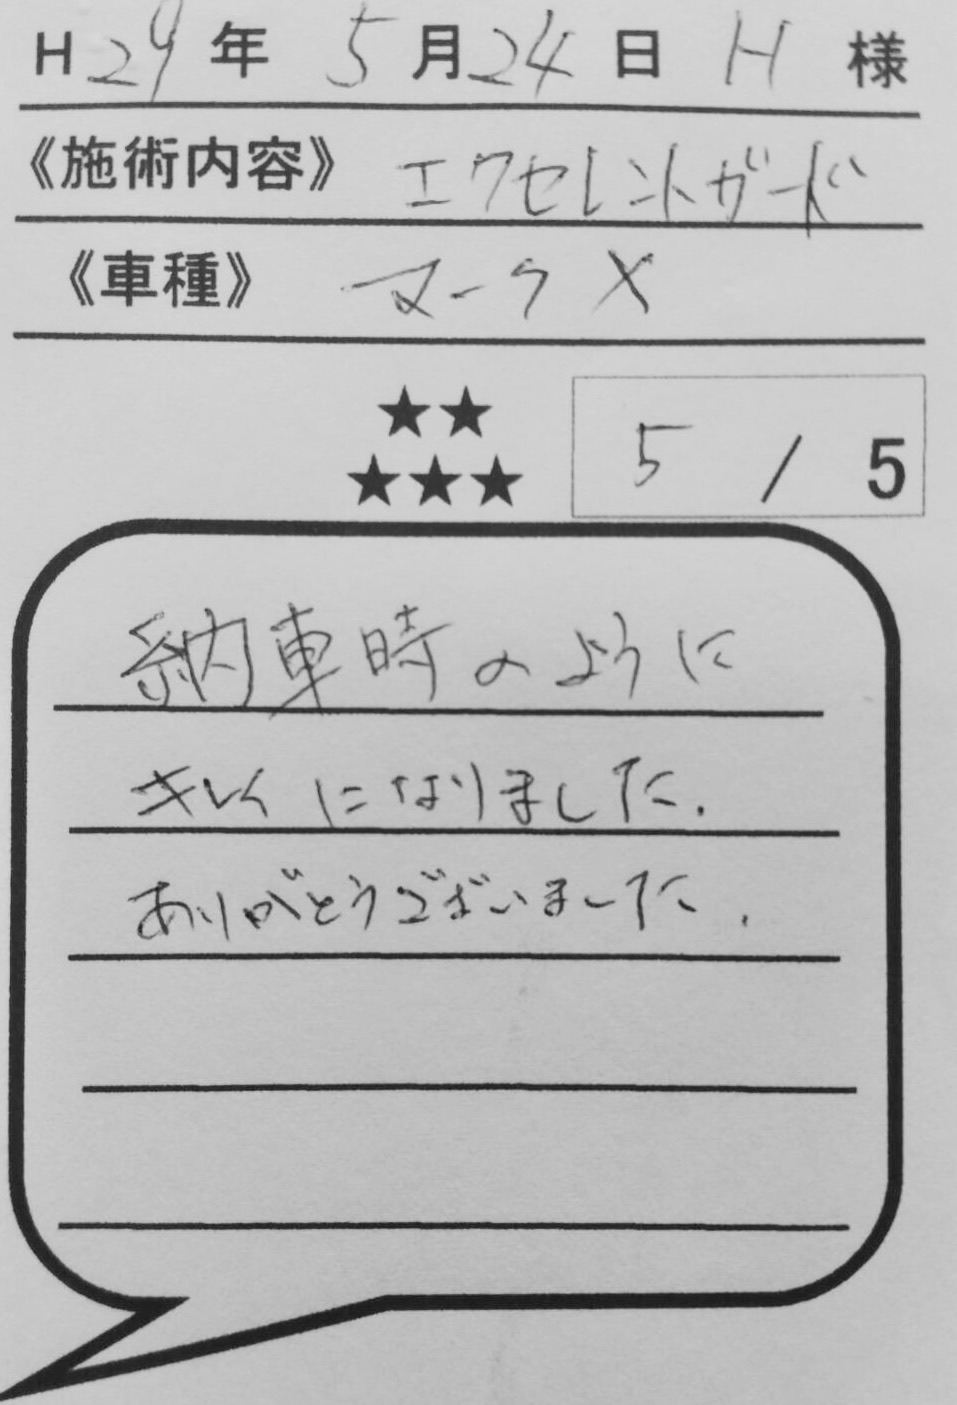 H29年 5月24日 H 様
《施術内容》 エクセレントガード
《車種》 マークX
★★
★★★
5 / 5
納車時のように
キレイになりました.
ありがとうございました.